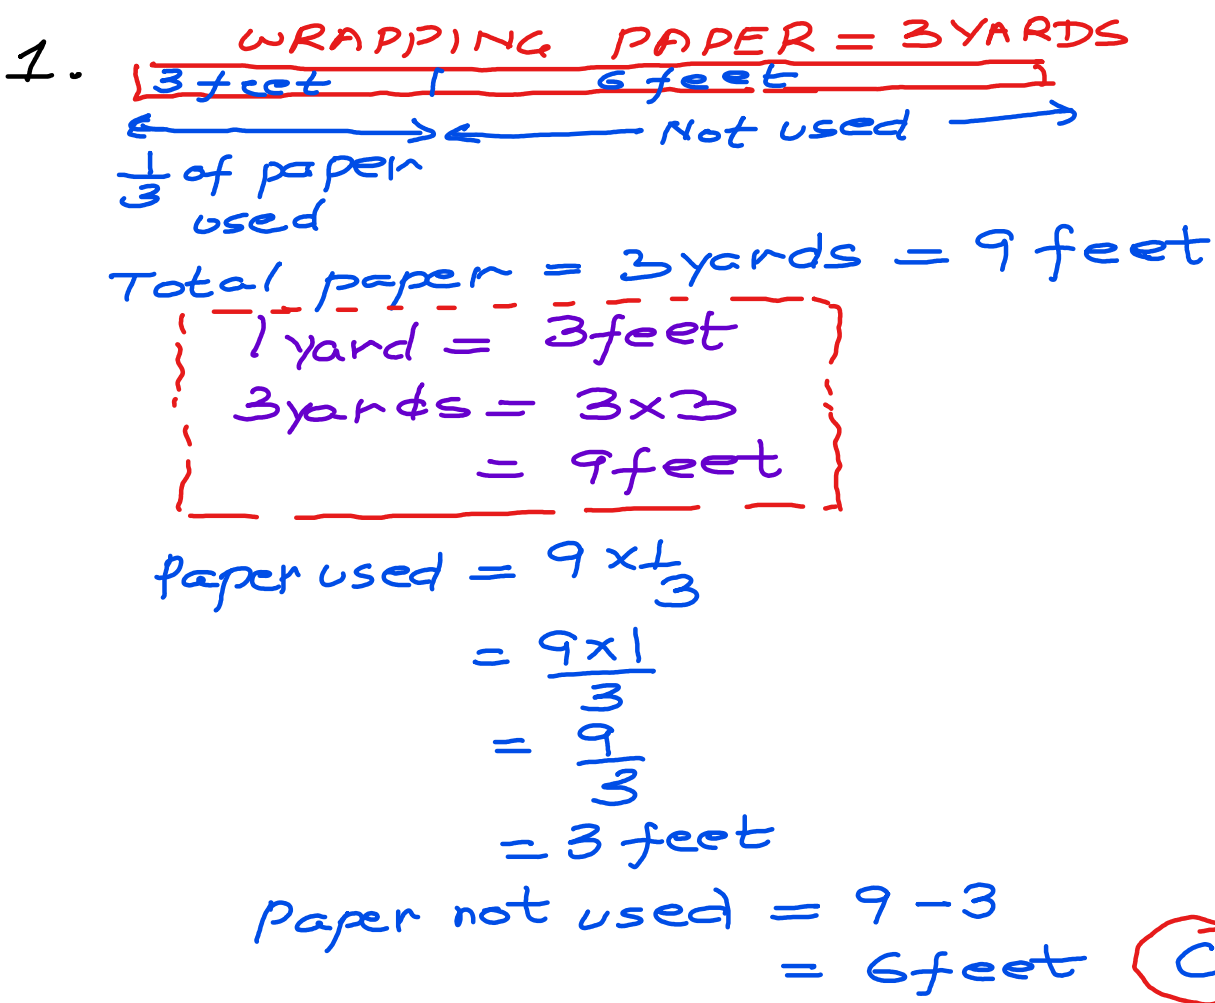 1. WRAPPING PAPER = 3 YARDS
3 feet 6 feet
Not used
1/3 of paper
used
Total paper = 3 yards = 9 feet
1 yard = 3 feet
3 yards = 3 x 3
= 9 feet
Paper used = 9 x 1/3
= 9 x 1 / 3
= 9/3
= 3 feet
Paper not used = 9 - 3
= 6 feet C